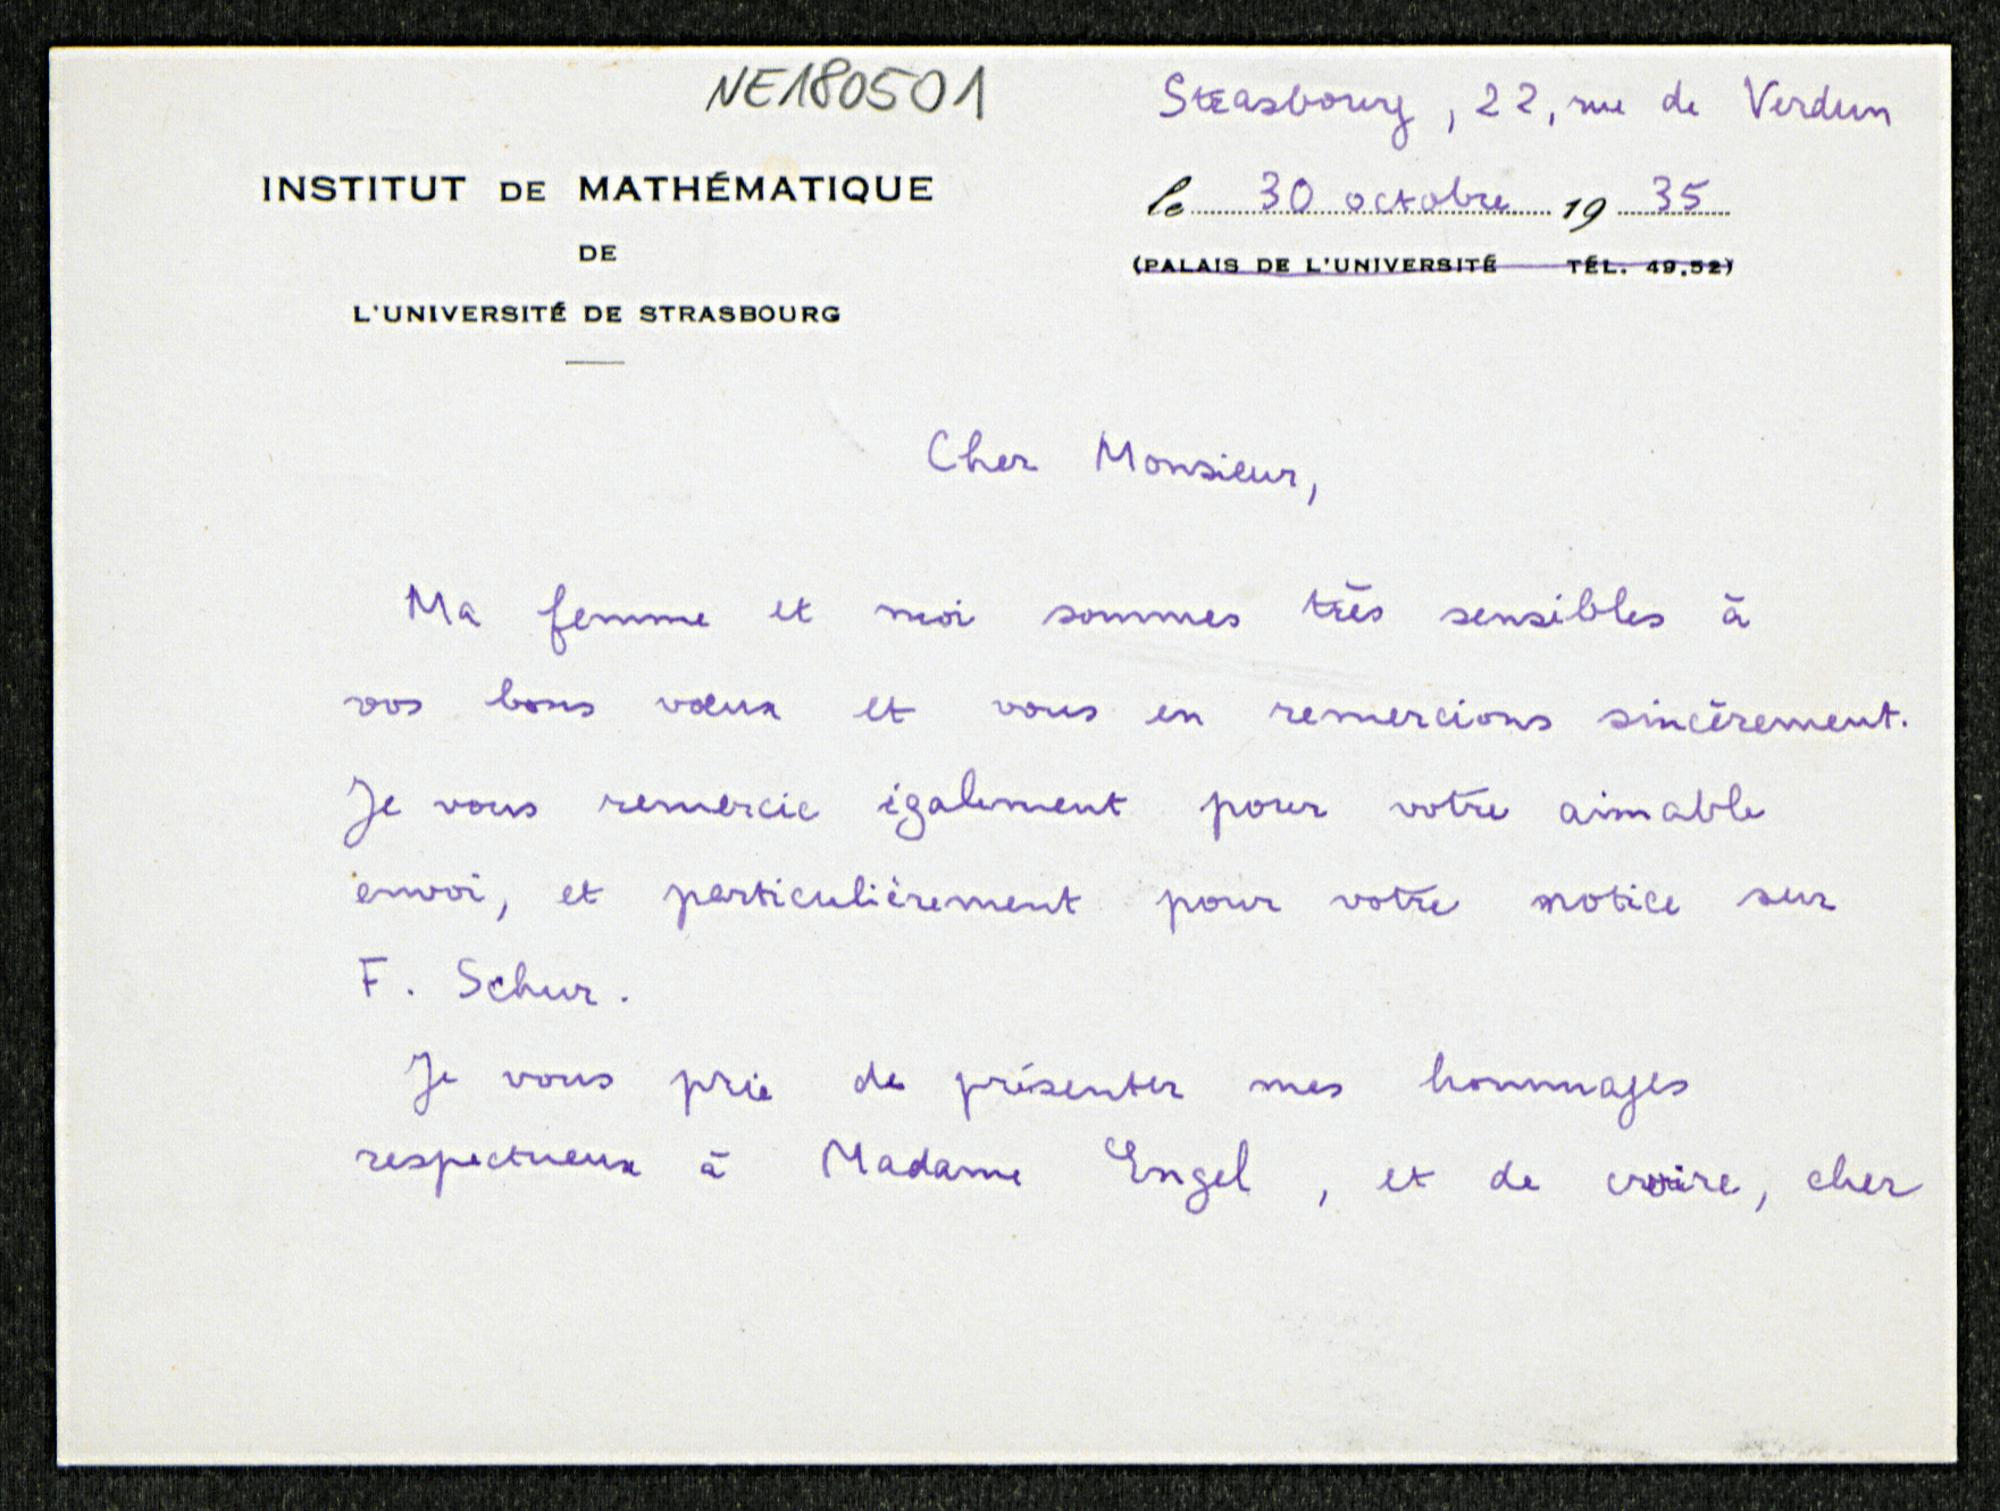 NE180501
Strasbourg, 22, rue de Verdun
INSTITUT DE MATHÉMATIQUE
le 30 octobre 19 35
DE
(PALAIS DE L'UNIVERSITÉ TÉL. 49.52)
L'UNIVERSITÉ DE STRASBOURG
Cher Monsieur,
Ma femme et moi sommes très sensibles à
vos bons vœux et vous en remercions sincèrement.
Je vous remercie également pour votre aimable
envoi, et particulièrement pour votre notice sur
F. Schur.
Je vous prie de présenter mes hommages
respectueux à Madame Engel, et de croire, cher